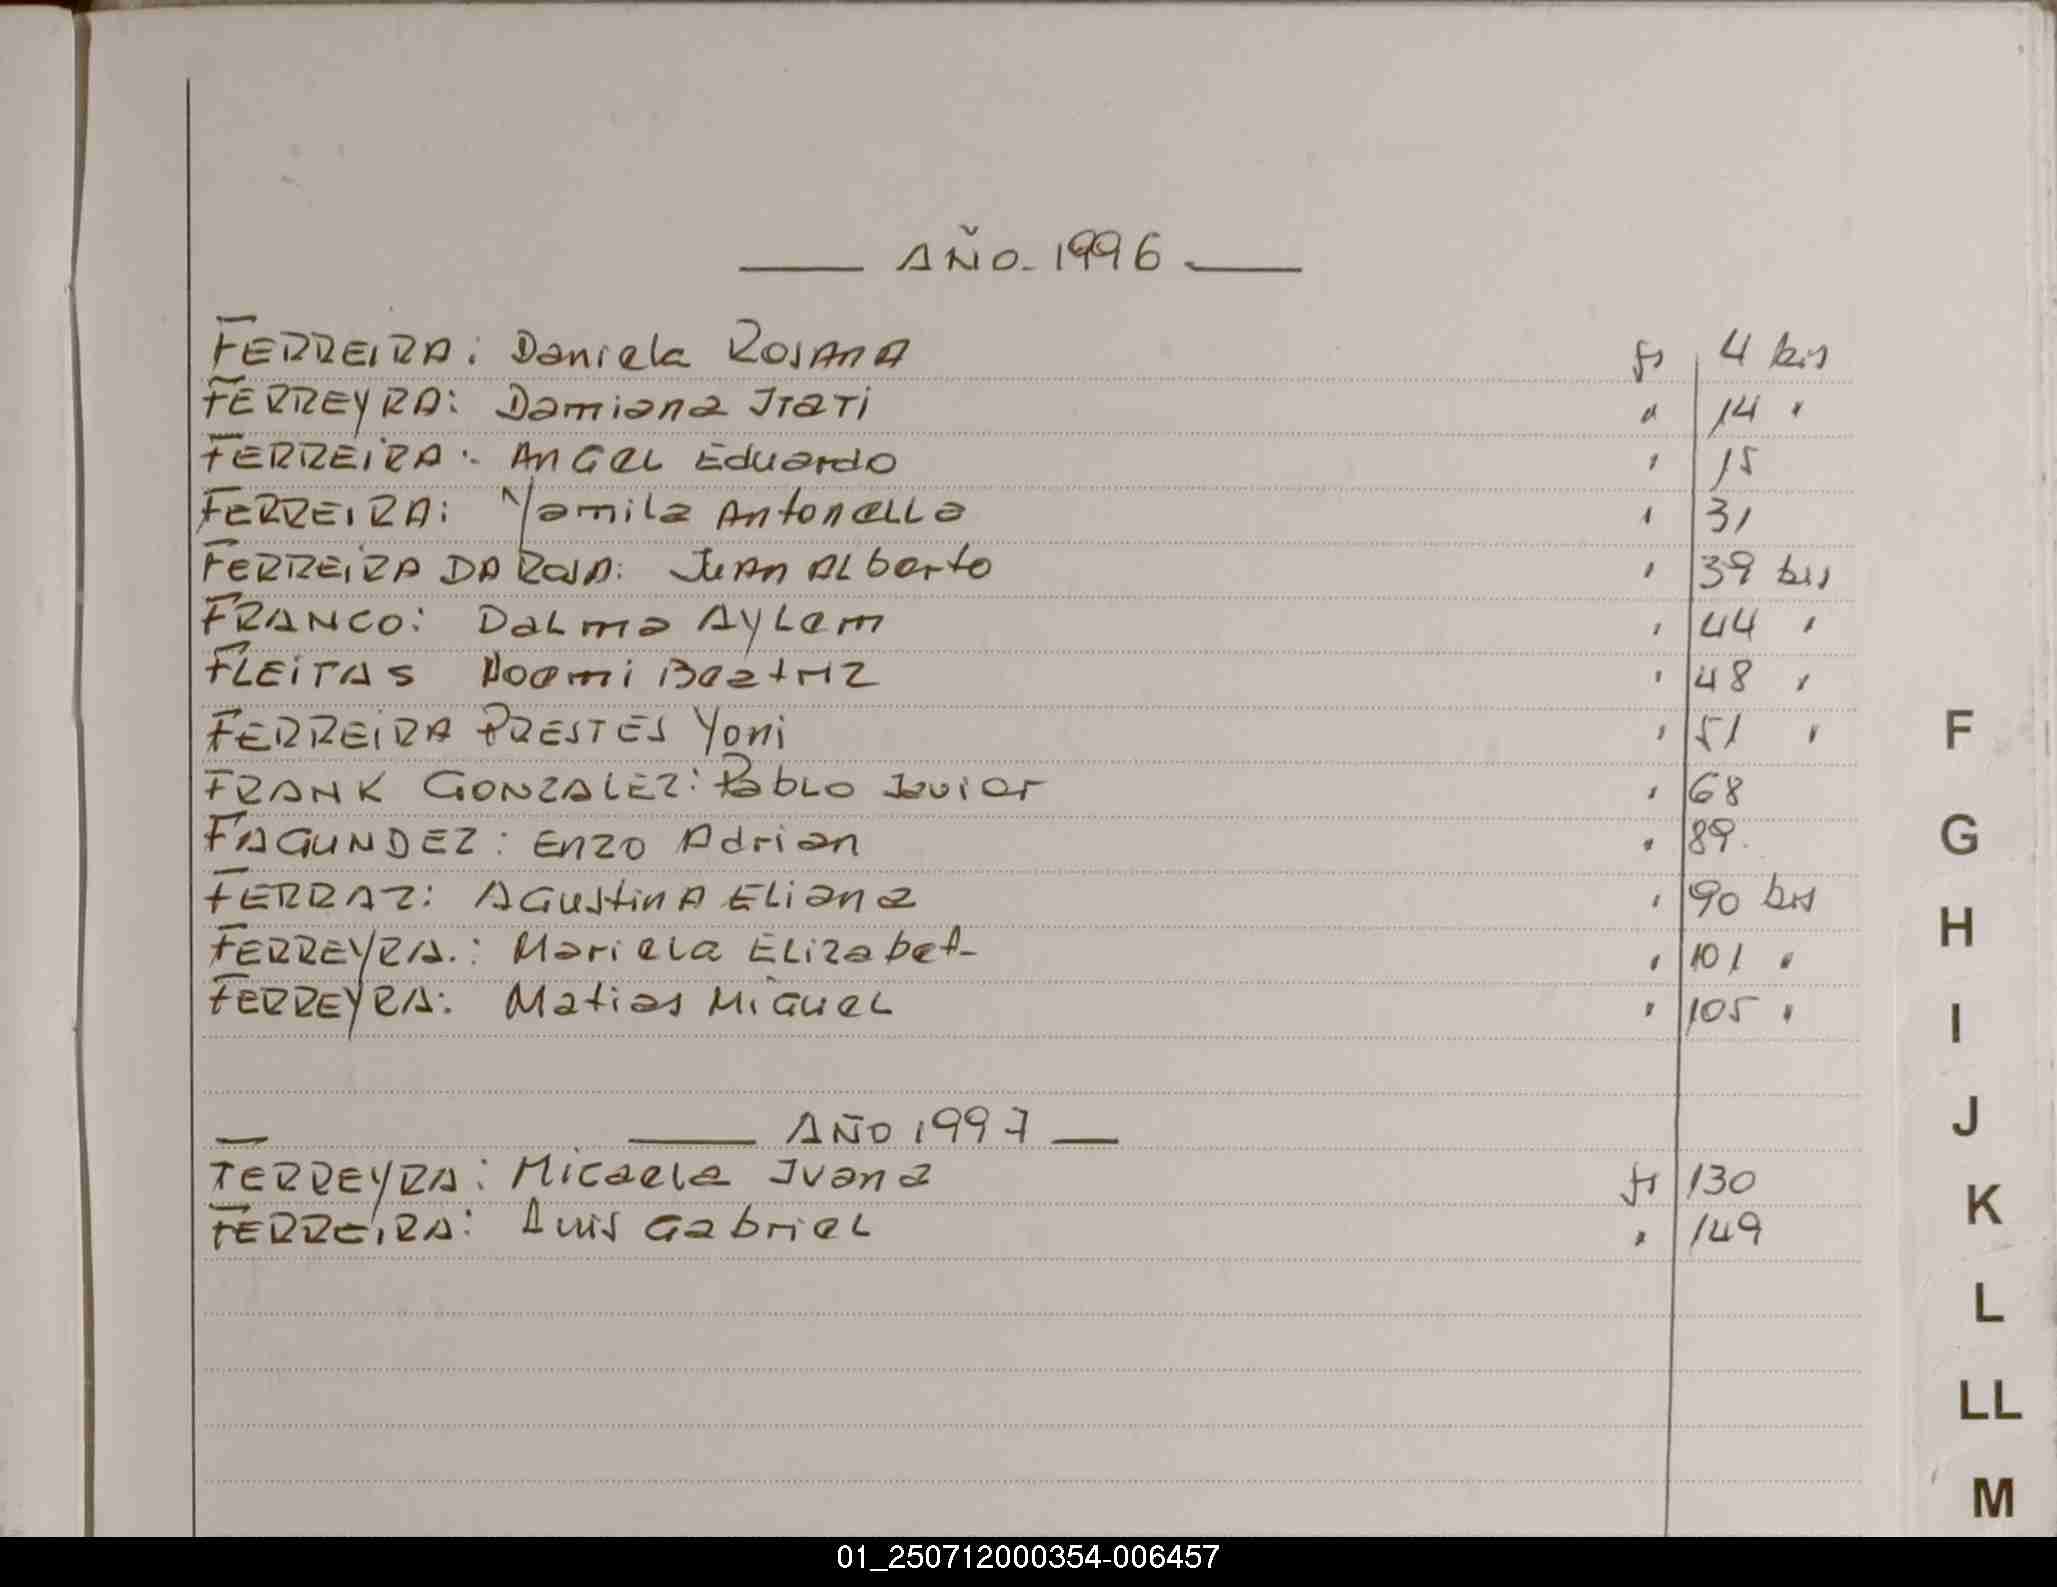 AÑO-1996
FERREIRA: Daniela Rosana fs 4 bis
FERREYRA: Damiana Itati " 14 "
FERREIRA: Angel Eduardo " 15
FERREIRA: Yamila Antonella " 31
FERREIRA DA ROSA: Juan Alberto " 39 bis
FRANCO: Dalma Aylem " 44 "
FLEITAS Noemi Beatriz " 48 "
FERREIRA PRESTES Yoni " 51 "
FRANK GONZALEZ: Pablo Javier " 68
FAGUNDEZ: Enzo Adrian " 89
FERRAZ: Agustina Eliana " 90 bis
FERREYRA.: Mariela Elizabet- " 101 "
FERREYRA: Matias Miguel " 105 "
AÑO 1997
FERREYRA: Micaela Ivana fs 130
FERREIRA: Luis Gabriel " 149
F
G
H
I
J
K
L
LL
M
01_250712000354-006457